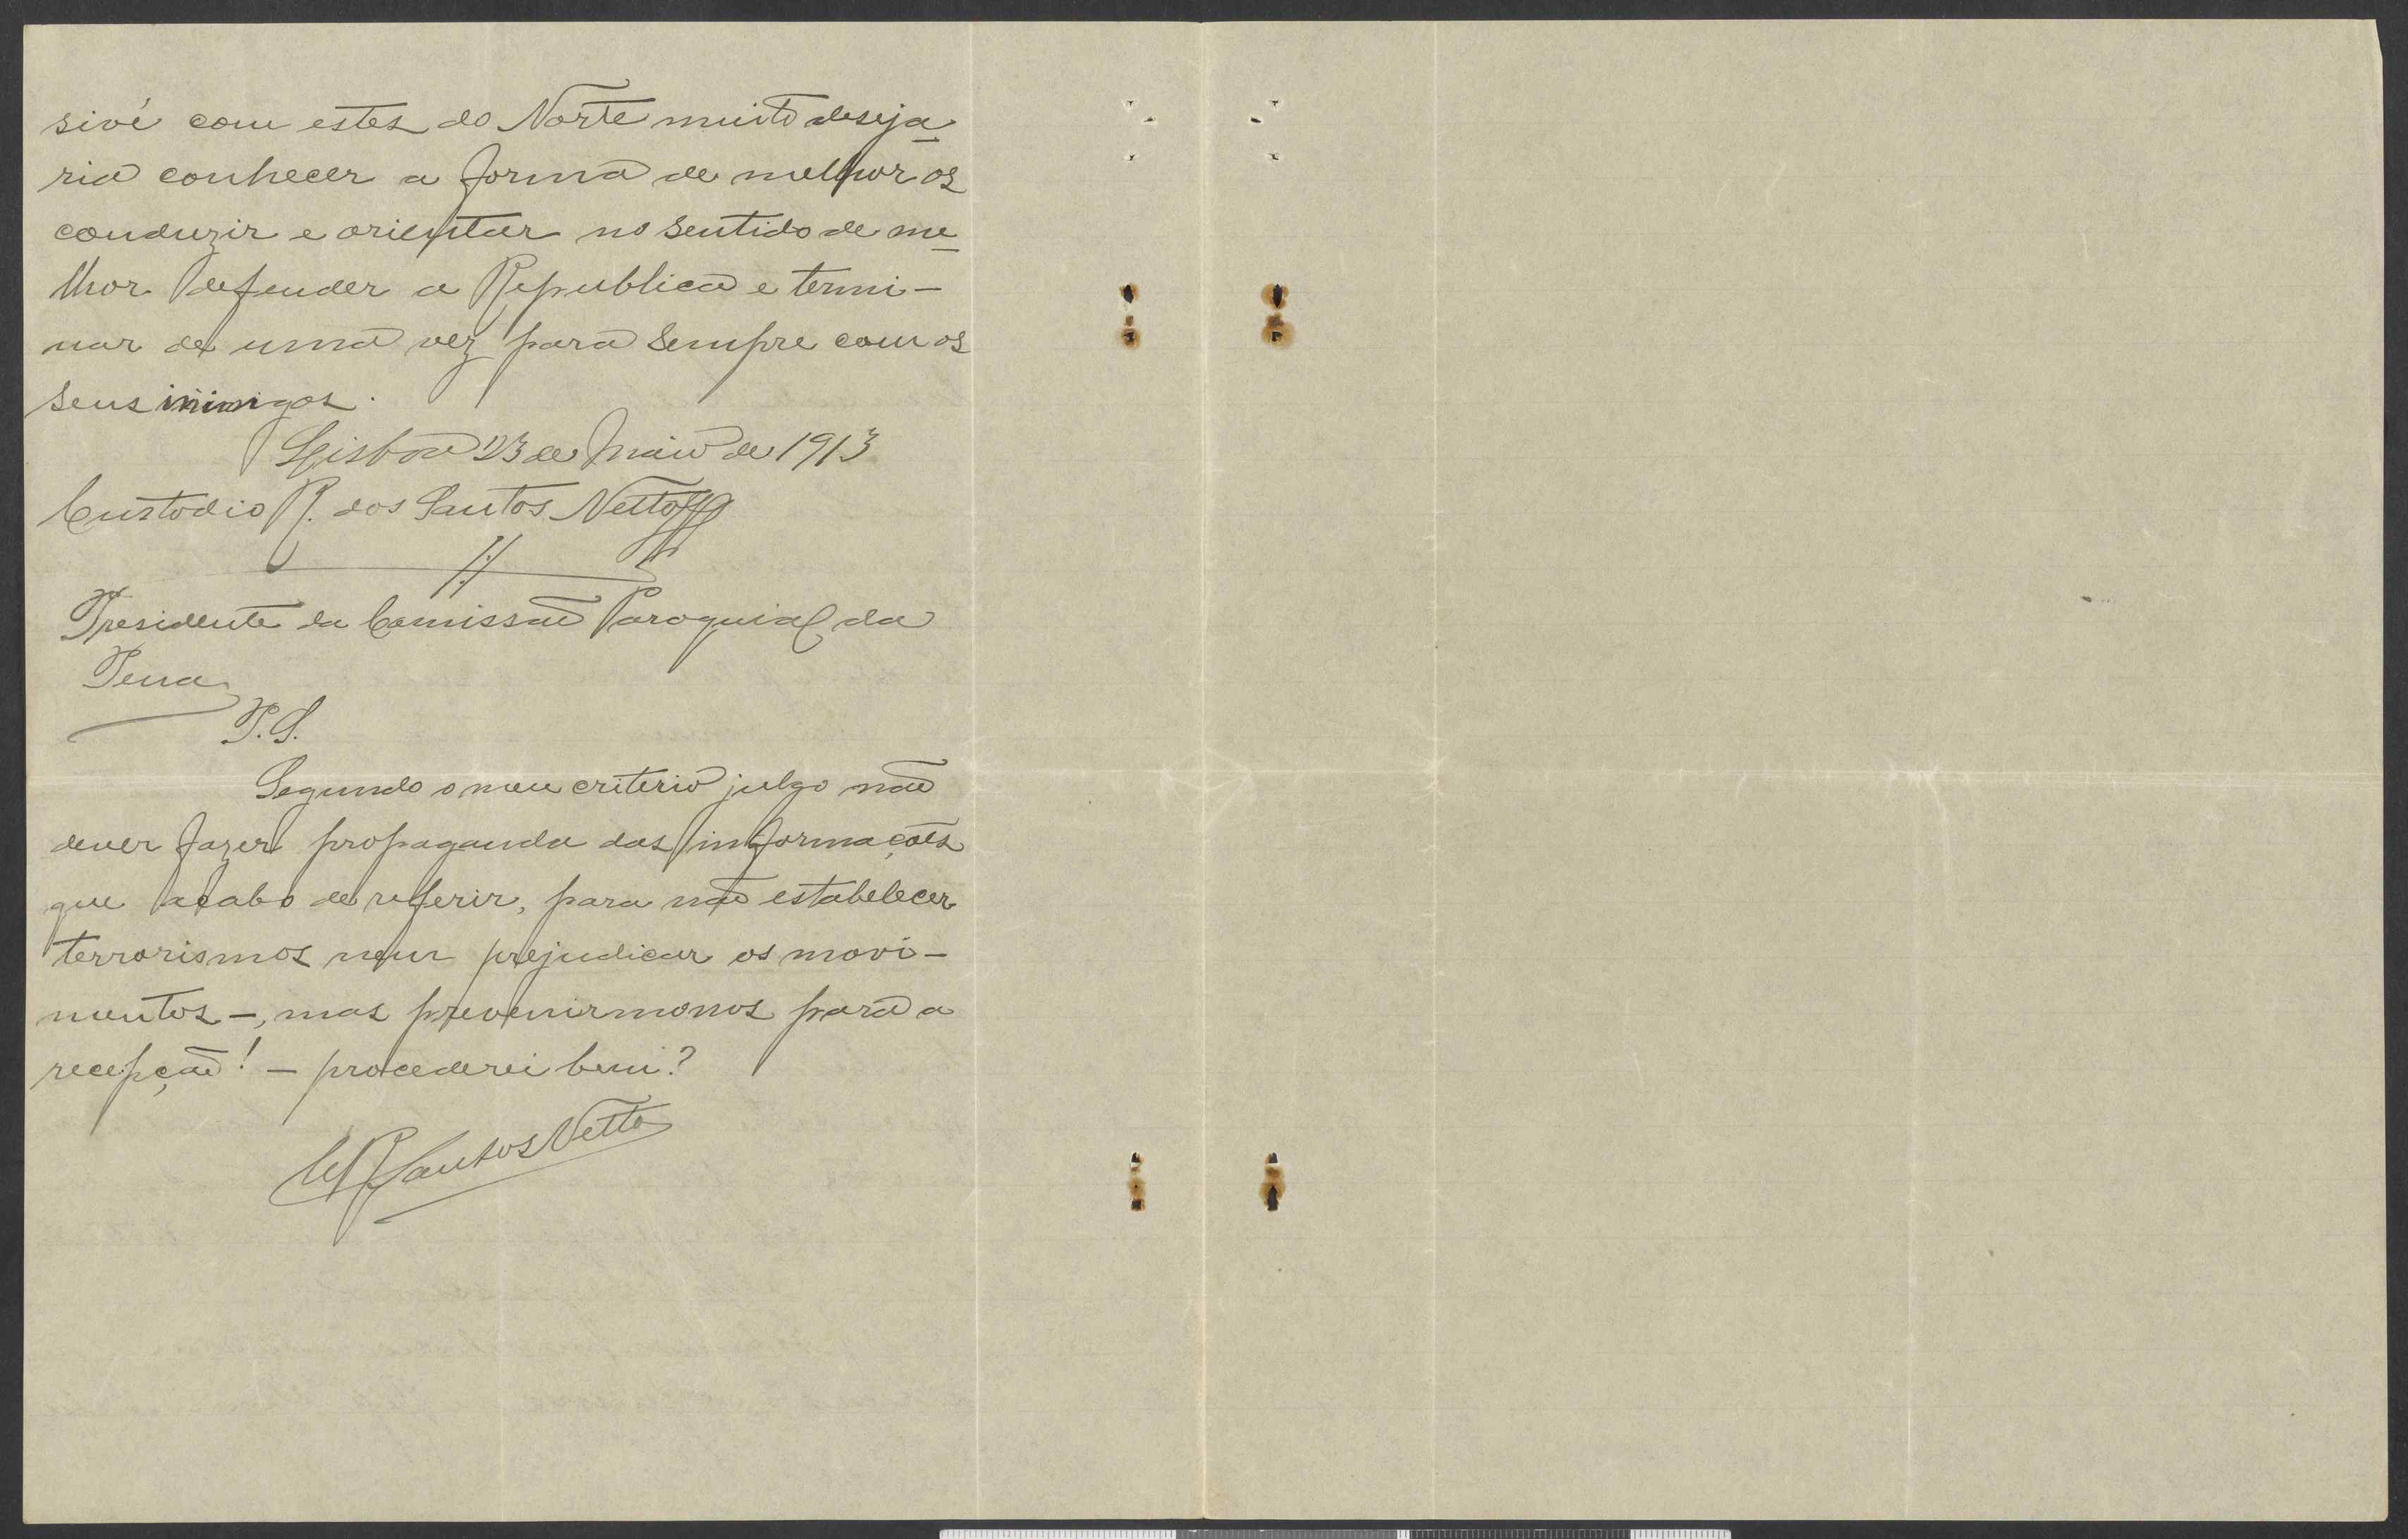 sivé com estes do Norte muito deseja
ria conhecer a forma de melhor os
conduzir e orientar no sentido de me
lhor defender a Republica e termi-
nar de uma vez para sempre com os
seus inimigos.
Lisboa 23 de Maio de 1913
Custodio R. dos Santos Netto
Presidente da Comissão Paroquial da
Pena
P.S.
Segundo o meu criterio julgo não
dever fazer propaganda das informações
que acabo de referir, para não estabelecer
terrorismos nem prejudicar os movi-
mentos -, mas prevenirmonos para a
recepção! - procederei bem?
C R Santos Netto